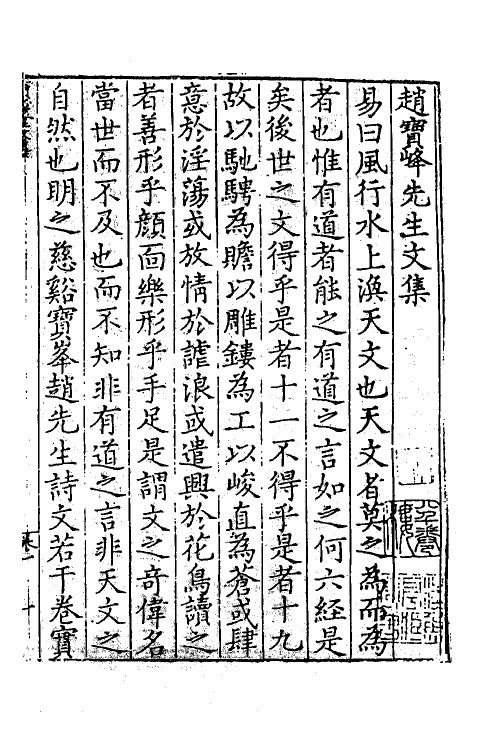 趙寶峰先生文集
易曰風行水上渙天文也天文者莫之為而為
者也惟有道者能之有道之言如之何六経是
矣後世之文得乎是者十一不得乎是者十九
故以馳騁為贍以雕鏤為工以峻直為蒼或肆
意於淫蕩或放情於謔浪或遣興於花鳥讀之
者善形乎顔面樂形乎手足是謂文之竒偉名
當世而不及也而不知非有道之言非天文之
自然也明之慈谿寶峯趙先生詩文若干卷寳